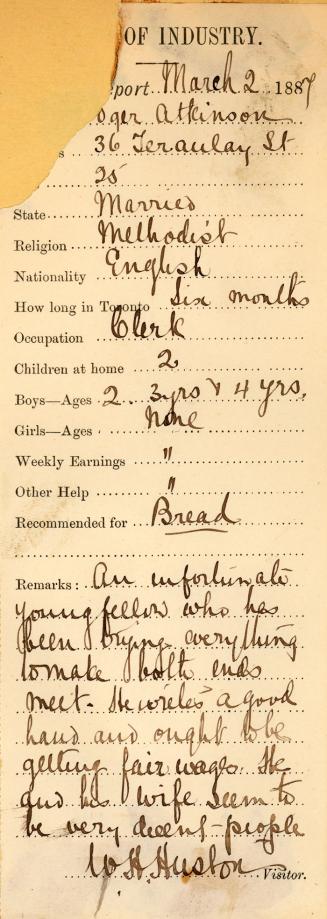 OF INDUSTRY.
port March 2 1887
oger Atkinson
s 36 Teraulay St
25
State Married
Religion Methodist
Nationality English
How long in Toronto Six months
Occupation Clerk
Children at home 2
Boys—Ages 2 3yrs & 4 yrs.
Girls—Ages None
Weekly Earnings "
Other Help "
Recommended for Bread
Remarks: An unfortunate
young fellow who has
been trying everything
to make both ends
meet. He writes a good
hand and ought to be
getting fair wages. He
and his wife seem to
be very decent people
W. H. Huston Visitor.